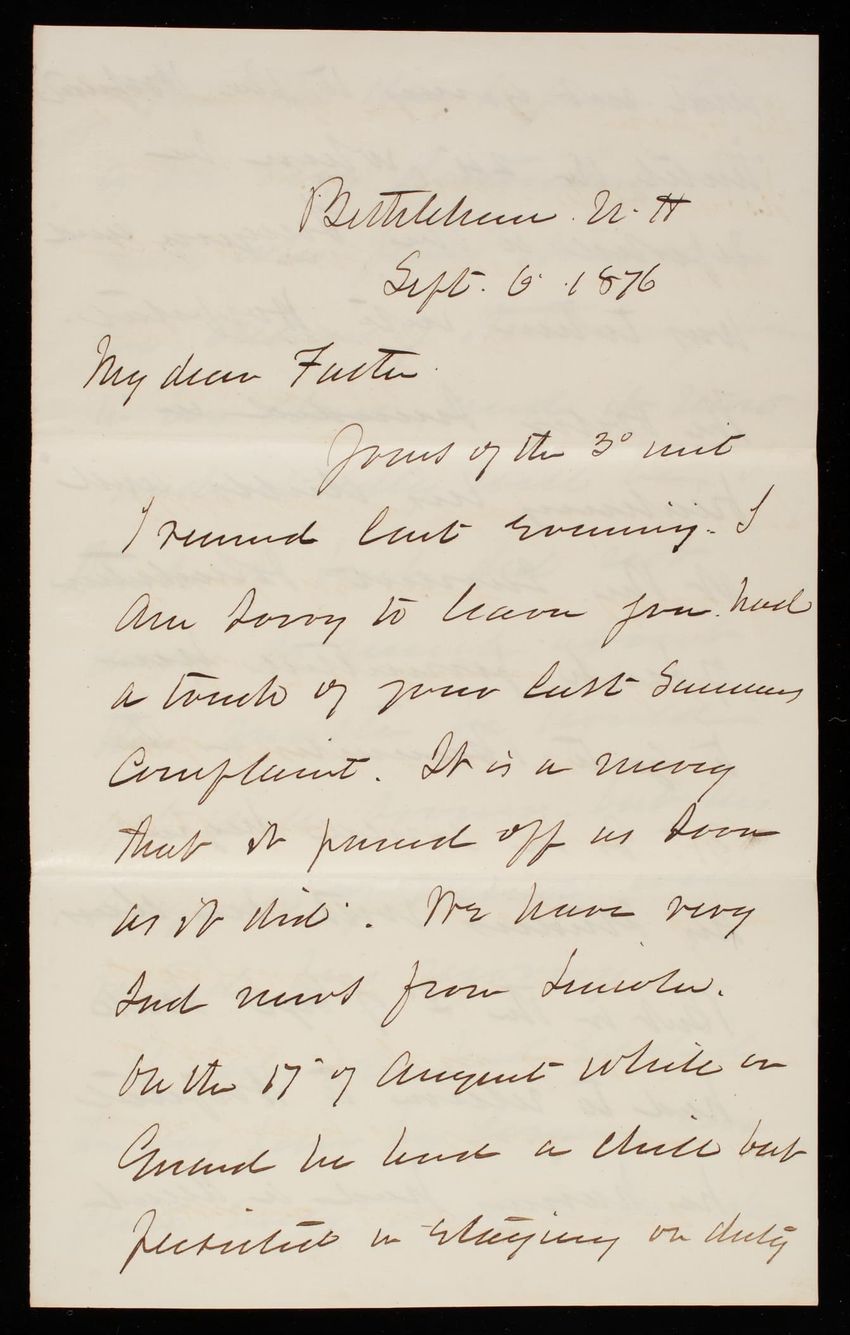 Bethlehem. N. H
Sept. 6. 1876
My dear Father.
Yours of the 3° inst
I received last evening. I
am sorry to learn you had
a touch of your last Summers
Complaint. It is a mercy
that it passed off as soon
as it did. We have very
sad news from Lincoln.
On the 17" of August while on
Guard he had a chill but
persisted in staying on duty